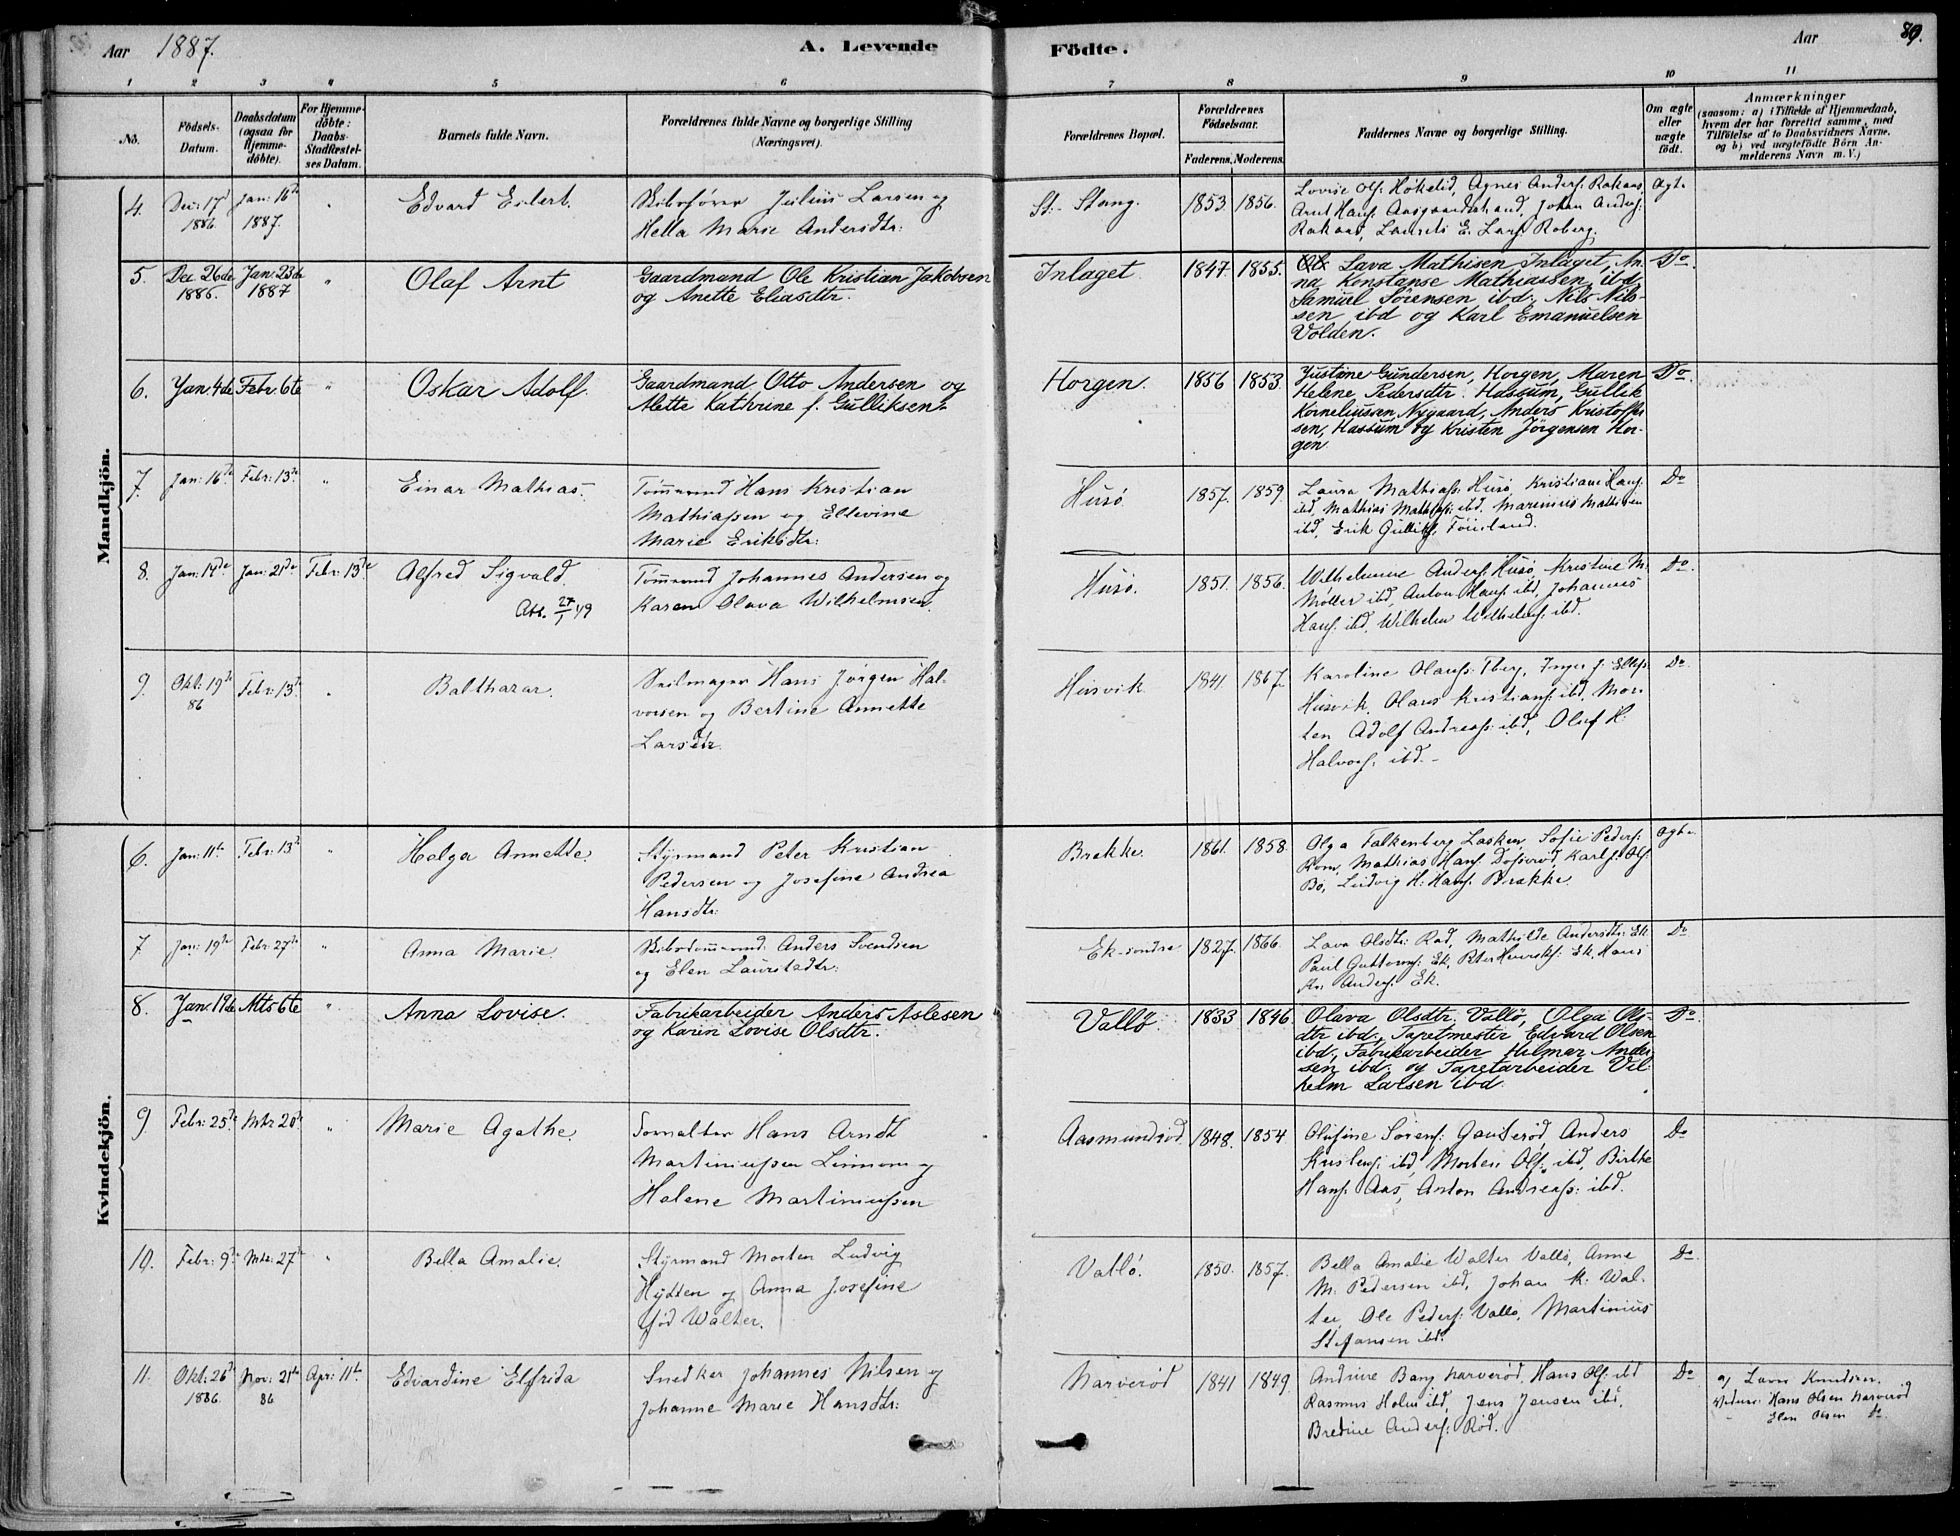 Aar 1887. A. Levende Fødte. Aar 89.
1 2 3 4 5 6 7 8 9 10 11
No.
Födsels-Datum.
Daabsdatum (ogsaa for Hjemme-döbte).
For Hjemme-döbte: Daabs-Stadfæstel-ses Datum.
Barnets fulde Navn.
Forældrenes fulde Navne og borgerlige Stilling
(Næringsvei).
Forældrenes Bopæl.
Forældrenes Födselsaar.
Faderens. Moderens.
Faddernes Navne og borgerlige Stilling.
Om ægte eller uægte födt.
Anmærkninger
(saasom: a) i Tilfælde af Hjemmedaab,
hvem der har forrettet samme, med
Tilföielse af to Daabsvidners Navne.
og b) ved uægtefödte Börn An-
melderens Navn m. V.)
Mandkjön.
4. Dec: 17d 1886 Jan: 16de 1887. " Edvard Eilert.
Skibsfører Julius Larsen og
Hella Marie Andersdtr:
St. Stang. 1853. 1856.
Lovise Ols: Høkelid, Agnes Anders: Rakaas,
Arnt Hans: Aasgaardstrand, Johan Anders:
Rakaas, Laurits E. Lars: Roberg.
Ægte
5. Dec 26de 1886. Jan. 23de 1887 " Olaf Arnt
Gaardmand Ole Kristian Jakobsen
og Anette Eliasdtr.
Inlaget. 1847. 1855.
Lava Mathisen Inlaget, An-
na Konstanse Mathiassen ibd,
Samuel Sörensen ibd., Nils Nils-
sen ibd og Karl Emanuelsen
Volden.
Do.
6. Jan. 4de Febr. 6te " Oskar Adolf.
Gaardmand Otto Andersen og
Mette Kathrine f. Gulliksen.
Horgen. 1856 1853.
Justine Gundersen, Horgen, Maren
Helene Pedersdtr. Hassum, Gullik
Korneliussen, Nygaard, Anders Kristoffer-
sen, Hassum og Kristen Jörgensen Hor-
gen
Do.
7. Jan: 16de Febr: 13de " Einar Mathias.
Tømmermd Hans Kristian
Mathiassen og Ellevine
Marie Eriksdtr:
Husø 1857. 1859.
Laura Mathias: Husø, Kristiane Hans:
ibd, Mathias Mathias: ibd. Marinius Mathisen
ibd, Erik Gulliks: Føinland.
Do
8. Jan: 14de Jan: 21de Febr: 13de Alfred Sigvald.
Att. 27/1 49
Tømmermd Johannes Andersen og
Karen Olava Wilhelmsen.
Husø. 1851. 1856.
Wilhelmine Anders: Husø, Kristine M.
Møller ibd, Anton Hans: ibd, Johannes
Hans: ibd, Wilhelm Wilhelms: ibd.
Do.
9. Okt: 19de 86 Febr: 13de " Balthazar.
Seilmager Hans Jørgen Hal-
vorsen og Bertine Annette
Larsdtr.
Husvik. 1841. 1867.
Karoline Olaus: Tberg, Inger f. Ellefs:
Husvik, Olaus Kristians: ibd, Mor-
ten Adolf Andreas: ibd, Oluf H.
Halvors: ibd.
Do
Kvindekjön.
6. Jan: 11te Febr: 13de " Helga Annette.
Styrmand Peter Kristian
Pedersen og Josefine Andrea
Hansdtr:
Brække. 1861. 1858.
Olga Falkenberg Lasken, Sofie Peders:
Rom, Mathias Hans: Dofserød, Karl f. Ols:
Bø, Ludvig H: Hans: Brække.
Ægte
7 Jan: 19de Febr: 27de " Anna Marie.
Skibstømmermd: Anders Svendsen
og Elen Lauritsdtr:
Ek-søndre 1827. 1866.
Lava Olsdtr: Rød, Mathilde Andersdtr: Ek
Paul Guttorms: Ek, Peter Henriks: Ek, Hans
Kr: Anders: Ek.
Do
8. Jan. 19de Mts 6te " Anna Lovise.
Fabrikarbeider Anders Aslesen
og Karen Lovise Olsdtr.
Vallø 1833 1846.
Olava Olsdtr. Vallø, Olga Ols-
dtr ibd, Tapetmester Edvard Olsen
ibd, Fabrikarbeider Hilmar Ander-
sen ibd. og Tapetarbeider Vil-
helm Larsen ibd.
Do.
9. Febr: 25de Mts 20de " Marie Agathe.
Formalter Hans Arndt
Martiniussen Linnom og
Helene Martiniussen
Aasmundrød. 1848. 1854
Olufine Sørens: Gauserød, Anders
Kristens: ibd, Morten Ols: ibd, Birthe
Hans: Aas, Anton Andreas: ibd.
Do
10. Febr: 9de Mts: 27de " Bella Amalie.
Styrmand Morten Ludvig
Hytten og Anna Josefine
fød Walter.
Vallø. 1850. 1857.
Bella Amalie Walter Vallø, Anne
M. Pedersen ibd, Johan K: Wal-
ter, Ole Peders: Vallø, Martinius
Stefansen ibd.
Do
11. Okt: 26de 1886. Nov: 21de 86 Apr: 11te Edvardine Elfrida
Snedker Johannes Nilsen og
Johanne Marie Hansdtr:
Narverød 1841 1849.
Andrine Bang Narverød, Hans Ols: ibd
Rasmus Holm ibd, Jens Jensen ibd,
Bredine Anders: Rød.
Do
a) Lavra Knudsen.
Vidner: Hans Olsen Narverød og
Elen Olsen do